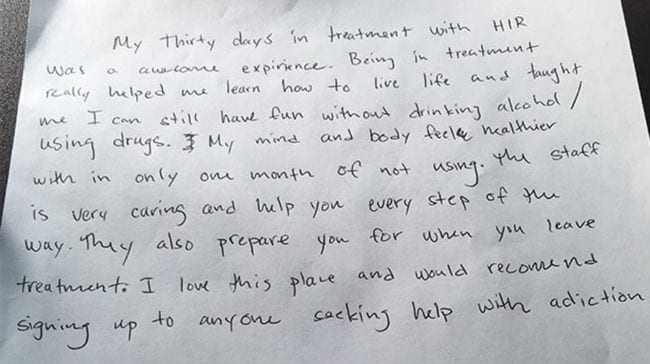 My Thirty days in treatment with HIR
was a awesome expirience. Being in treatment
really helped me learn how to live life and taught
me I can still have fun without drinking alcohol /
using drugs. My mind and body feel healthier
with in only one month of not using. The staff
is very caring and help you every step of the
way. They also prepare you for when you leave
treatment. I love this place and would recomend
signing up to anyone seeking help with adiction